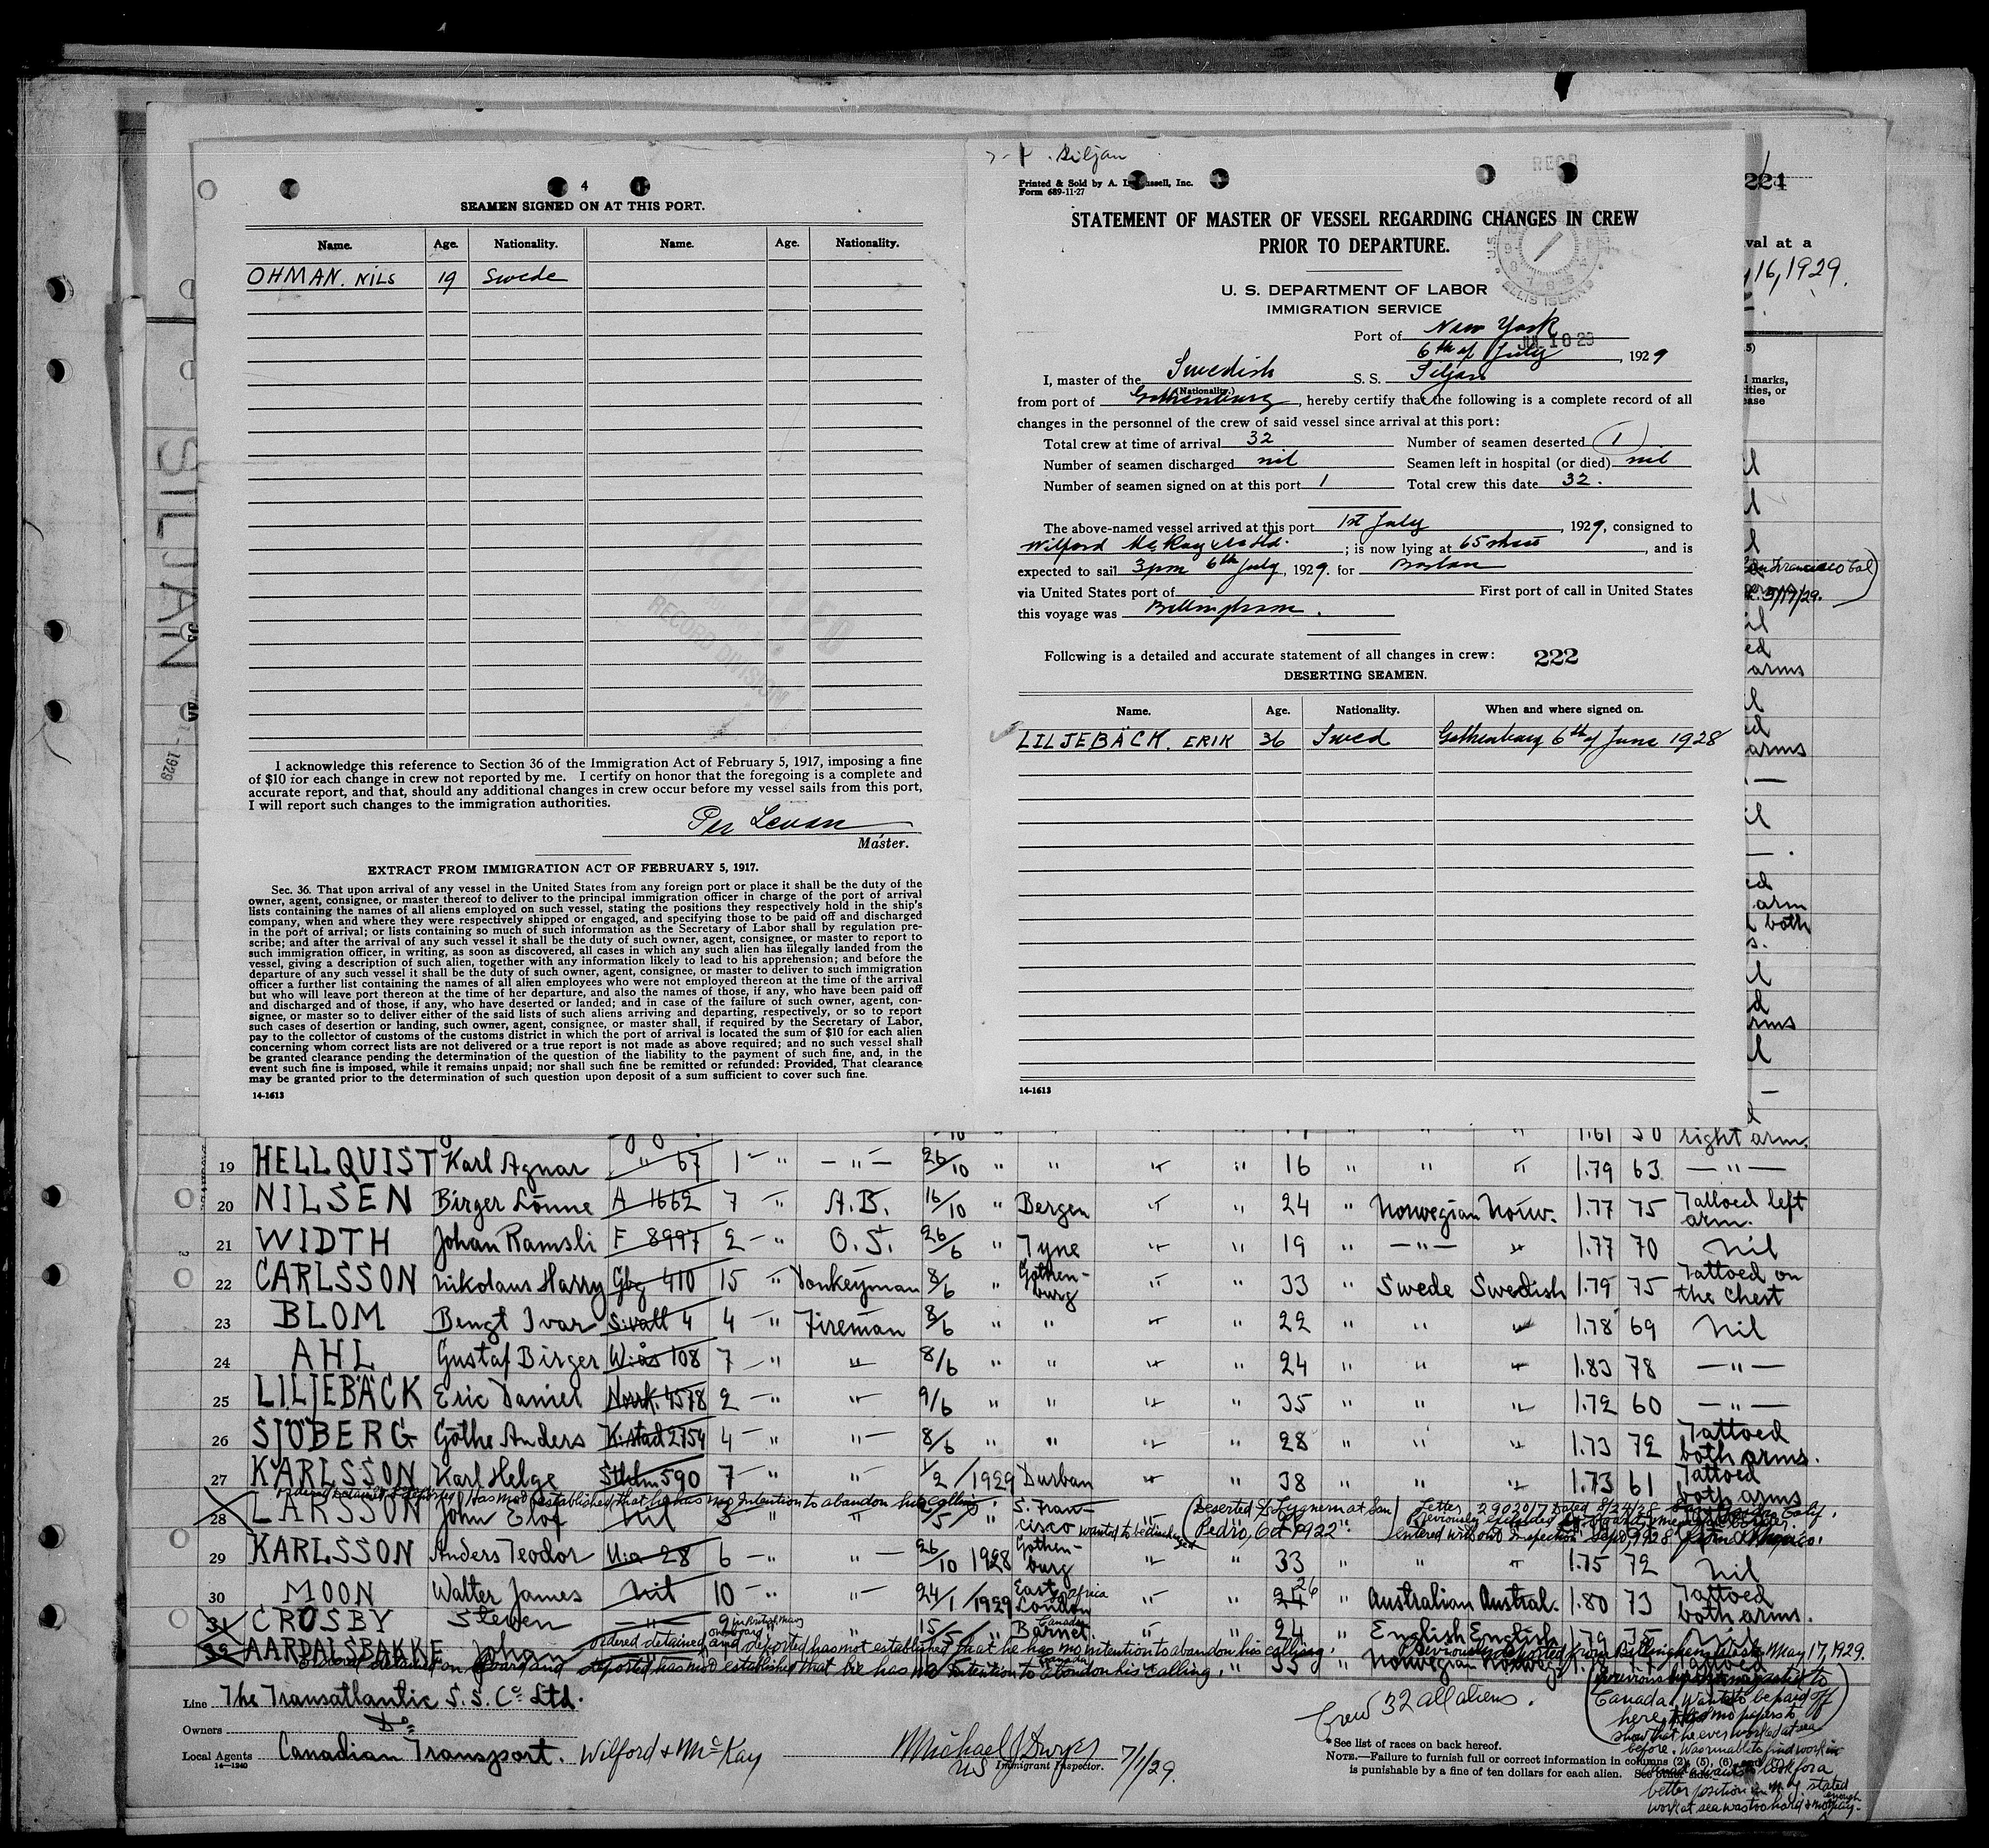 4
SEAMEN SIGNED ON AT THIS PORT.
Name. Age. Nationality. Name. Age. Nationality.
OHMAN. NILS 19 Swede
I acknowledge this reference to Section 36 of the Immigration Act of February 5, 1917, imposing a fine
of $10 for each change in crew not reported by me. I certify on honor that the foregoing is a complete and
accurate report, and that, should any additional changes in crew occur before my vessel sails from this port,
I will report such changes to the immigration authorities.
Master.
EXTRACT FROM IMMIGRATION ACT OF FEBRUARY 5, 1917.
Sec. 36. That upon arrival of any vessel in the United States from any foreign port or place it shall be the duty of the
owner, agent, consignee, or master thereof to deliver to the principal immigration officer in charge of the port of arrival
lists containing the names of all aliens employed on such vessel, stating the positions they respectively hold in the ship's
company, when and where they were respectively shipped or engaged, and specifying those to be paid off and discharged
in the port of arrival; or lists containing so much of such information as the Secretary of Labor shall by regulation pre-
scribe; and after the arrival of any such vessel it shall be the duty of such owner, agent, consignee, or master to report to
such immigration officer, in writing, as soon as discovered, all cases in which any such alien has illegally landed from the
vessel, giving a description of such alien, together with any information likely to lead to his apprehension; and before the
departure of any such vessel it shall be the duty of such owner, agent, consignee, or master to deliver to such immigration
officer a further list containing the names of all alien employees who were not employed thereon at the time of the arrival
but who will leave port thereon at the time of her departure, and also the names of those, if any, who have been paid off
and discharged and of those, if any, who have deserted or landed; and in case of the failure of such owner, agent, con-
signee, or master so to deliver either of the said lists of such aliens arriving and departing, respectively, or so to report
such cases of desertion or landing, such owner, agent, consignee, or master shall, if required by the Secretary of Labor,
pay to the collector of customs of the customs district in which the port of arrival is located the sum of $10 for each alien
concerning whom correct lists are not delivered or a true report is not made as above required; and no such vessel shall
be granted clearance pending the determination of the question of the liability to the payment of such fine, and, in the
event such fine is imposed, while it remains unpaid; nor shall such fine be remitted or refunded: Provided, That clearance
may be granted prior to the determination of such question upon deposit of a sum sufficient to cover such fine.
14-1613
Siljan
Printed & Sold by A. ussell, Inc.
Form 689-11-27
RECD
STATEMENT OF MASTER OF VESSEL REGARDING CHANGES IN CREW
PRIOR TO DEPARTURE.
ELLIS ISLAND
U. S. DEPARTMENT OF LABOR
IMMIGRATION SERVICE
Port of New York
JUL 10 29
6th of July, 1929
I, master of the Swedish S. S. Siljan
(Nationality.)
from port of Gothenburg, hereby certify that the following is a complete record of all
changes in the personnel of the crew of said vessel since arrival at this port:
Total crew at time of arrival 32 Number of seamen deserted 1
Number of seamen discharged nil Seamen left in hospital (or died) nil
Number of seamen signed on at this port 1 Total crew this date 32.
The above-named vessel arrived at this port 1st July, 1929, consigned to
Wilford McKay; is now lying at 65, and is
expected to sail 3pm 6th July, 1929. for Boston
via United States port of First port of call in United States
this voyage was Bellingham.
Following is a detailed and accurate statement of all changes in crew: 222
DESERTING SEAMEN.
Name. Age. Nationality. When and where signed on.
LILJEBÄCK. ERIK 36 Swed Gothenburg 6th of June 1928
14-1613
SILJAN
1929
221
val at a
16, 1929.
marks,
ities, or
ease
San Francisco Cal
5/17/29.
arms
arms
arm
both
rms
1.61 50 right arm.
19 HELLQUIST Karl Agnar " 67 1 - " - " - 26/10 " " " " 16 " " " 1.79 63 - " -
20 NILSEN Birger Lönne A 1662 7 " A.B. 16/10 " Bergen " " 24 " Norwegian Norw. 1.77 75 Tattoed left arm.
21 WIDTH Johan Ramsli F 8997 2 - " O.S. 26/6 " Tyne " " 19 " - " - " 1.77 70 Nil
22 CARLSSON Nikolaus Harry Gbg 410 15 " Donkeyman 8/6 " Gothen-burg " " 33 " Swede Swedish 1.79 75 Tattoed on the chest
23 BLOM Bengt Ivar S:vall 4 4 - " Fireman 8/6 " " " " 22 " " " 1.78 69 Nil
24 AHL Gustaf Birger W:ås 108 7 - " " 8/6 " " " " 24 " " " 1.83 78 - " -
25 LILJEBÄCK Eric Daniel Norrk. 4578 2 - " " 9/6 " " " " 35 " " " 1.72 60 - " -
26 SJÖBERG Göthe Anders K:stad 2754 4 - " " 8/6 " " " " 28 " " " 1.73 72 Tattoed both arms.
27 KARLSSON Karl Helge Sthlm 590 7 - " " 1/2 1929 Durban " " 38 " " " 1.73 61 Tattoed both arms
has not established that he has no intention to abandon his calling.
28 LARSSON John Elof Nil 3 " " S. Fran-cisco
Deserted S/S Lygnern at San Pedro, Oct 1922
Letter 29020/7 dated 8/24/28
entered without Inspection Sep 8, 1928 from Mexico.
29 KARLSSON Anders Teodor U:a 28 6 - " " 26/10 1928 Gothen-burg " " 33 " " " 1.75 72 Nil
30 MOON Walter James Nil 10 - " " 24/1 1929 East London Africa " " 24 26 " Australian Austral. 1.80 73 Tattoed both arms.
31 CROSBY Steven - " - 9 15/5 " Barnet Canada " " 24 " English English 1.79 75 Nil
ordered detained and deported has not established that he has no intention to abandon his calling.
32 AARDALSBAKKE Johan 35 " Norwegian
Previously deported from Bellingham Wash May 17, 1929.
ordered detained on board and deported, has not established that he has no intention to abandon his calling.
Line The Transatlantic S. S. Co Ltd.
Owners Do
Local Agents Canadian Transport. Wilford & McKay
14-1240
Michael J Dwyer 7/1/29.
US Immigrant Inspector.
Crew 32 all aliens.
* See list of races on back hereof.
NOTE.—Failure to furnish full or correct information in columns (2), (5), (6), and
is punishable by a fine of ten dollars for each alien. See other side.
Canada. Wants to be paid off
here, has no papers to
show that he ever worked at sea
before. Was unable to find work in
look for a
better position in N. Y. stated
work at sea was too hard & not enough pay.